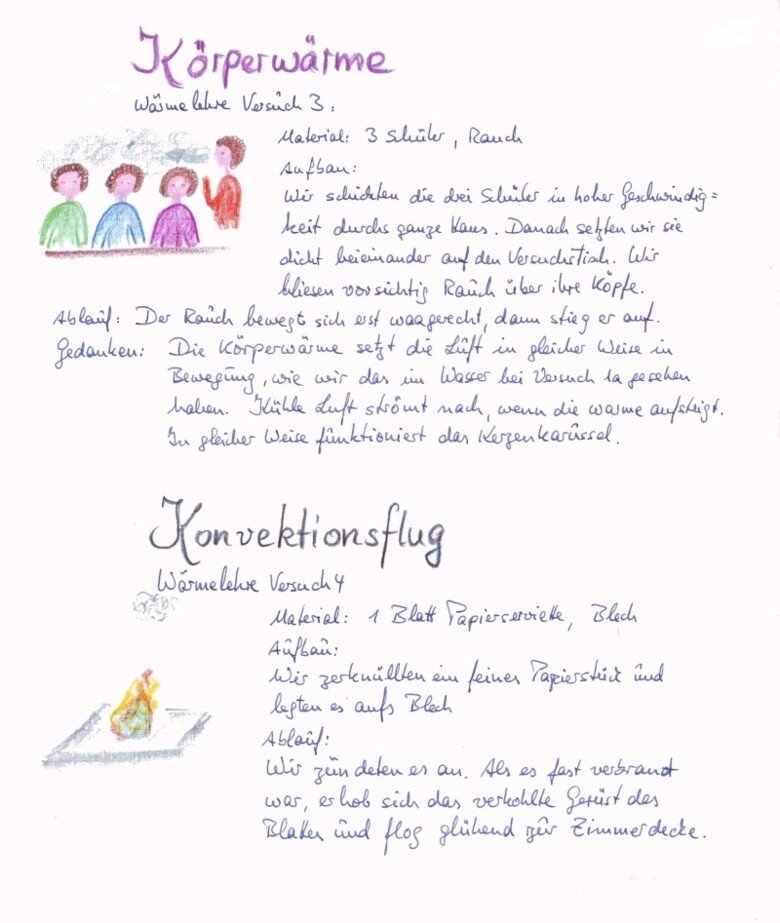 Körperwärme
Wärmelehre Versuch 3:
Material: 3 Schüler, Rauch
Aufbau:
Wir schickten die drei Schüler in hoher Geschwindig=
keit durchs ganze Haus. Danach setzten wir sie
dicht beieinander auf den Versuchstisch. Wir
bliesen vorsichtig Rauch über ihre Köpfe.
Ablauf: Der Rauch bewegt sich erst waagerecht, dann stieg er auf.
Gedanken: Die Körperwärme setzt die Luft in gleicher Weise in
Bewegung, wie wir das im Wasser bei Versuch 1a gesehen
haben. Kühle Luft strömt nach, wenn die warme aufsteigt.
In gleicher Weise funktioniert das Kerzenkarussel.
Konvektionsflug
Wärmelehre Versuch 4
Material: 1 Blatt Papierserviette, Blech
Aufbau:
Wir zerknüllten ein feines Papierstück und
legten es aufs Blech
Ablauf:
Wir zündeten es an. Als es fast verbrannt
war, erhob sich das verkohlte Gerüst des
Blattes und flog glühend zur Zimmerdecke.